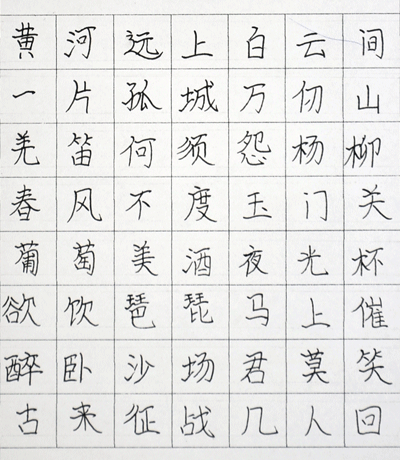 黄河远上白云间
一片孤城万仞山
羌笛何须怨杨柳
春风不度玉门关
葡萄美酒夜光杯
欲饮琵琶马上催
醉卧沙场君莫笑
古来征战几人回